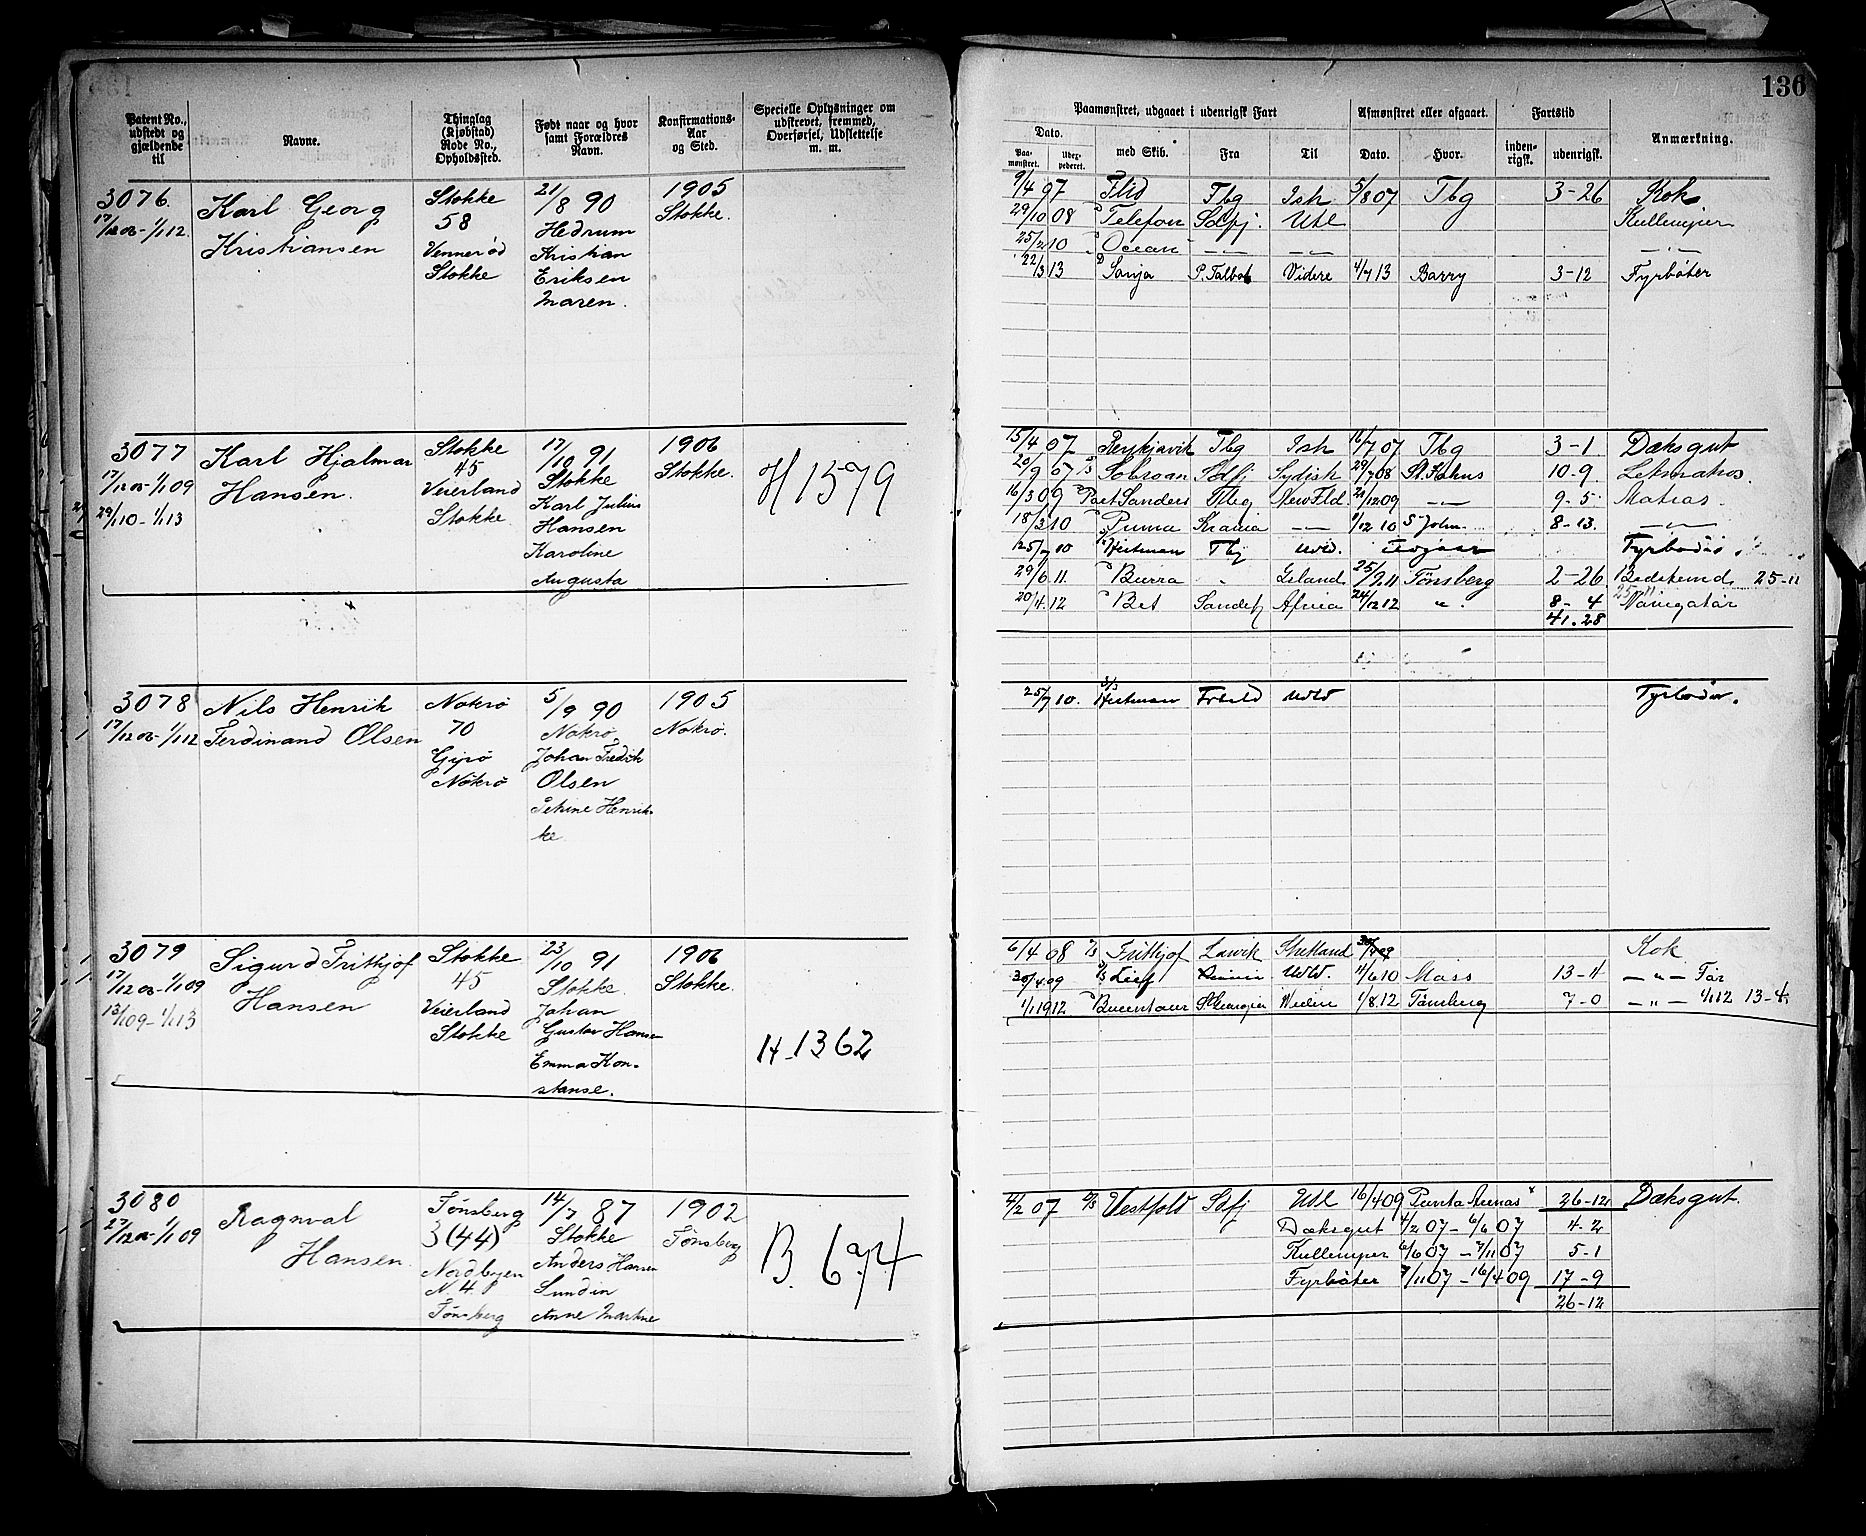 136
Patent No., udstedt og gjældende til
Navne.
Thinglag (Kjøbstad) Rode No., Opholdssted.
Født naar og hvor samt Forældres Navn.
Konfirmations-Aar og Sted.
Specielle Oplysninger om udskrevet, fremmed, Overførsel, Udslettelse m. m.
Paamønstret, udgaaet i udenrigsk Fart
Afmønstret eller afgaaet.
Fartstid
Anmærkning.
Dato.
Paa-mønstret.
med Skib.
Fra
Til
Dato.
Hvor.
inden-rigsk.
udenrigsk.
3076.
17/12 06-1/1 12.
Karl Georg
Kristiansen
Stokke
58
Vennerød
Stokke
21/8 90
Hedrum
Kristian
Eriksen
Maren.
1905
Stokke.
9/4 07 Tbg Ish 5/8 07 Tbg 3-26 Kok
29/10 08 Telefon Utl Kullemper
25/2 10 Ocean — — —„—
22/3 13 Sonja P. Talbot Videre 4/7 13 Barry 3-12 Fyrbøter
3077
17/12 06-1/1 09
29/1 10-1/1 13
Karl Hjalmar
Hansen.
Stokke
45
Veierland
Stokke
17/10 91
Stokke
Karl Julius
Hansen
Karoline
Augusta
1906
Stokke.
H 1579
15/4 07 Reykjavik Tbg Ish 16/7 07 Tbg 3-1 Dæksgut
20/9 07 Sobraon Sdfj Sydish 29/7 08 10-9. Letmatros
16/3 09 Port Sanders Tbg NewFld 24/12 09 —„— 9-5 Matros
18/2 10 Puma —„— 1/12 10 St John. 8-13. —„—
25/7 10 Tbg Utld.
29/6 11. Burra „ Island 25/9 11 Tønsberg 2-26 25-11
20/4 12 Sandefj Africa 24/12 12 „. 8-4
41.28
3078
17/12 06-1/1 12
Nils Henrik
Ferdinand Olsen
Nøtrø
70
Gipø
Nøtrø
5/9 90
Nøtrø
Johan Fredrik
Olsen
Henrik-
ke
1905
Nøtrø.
25/7 10. Utld Fyrbøder.
3079
17/12 06-1/1 09
13/1 09-1/1 13
Sigurd Frithjof
Hansen
Stokke
45
Veierland
Stokke
23/10 91
Stokke.
Johan
Gustav Hansen
Emma Kon-
stanse.
1906
Stokke.
H-1362
6/4 08 Frithjof Larvik Shetland 30/4 09 Kok
30/4 09 Leif Utld. 11/6 10 Moss 13-11 —„—
1/1 1912 Bucentaur 1/8. 12 Tønsberg 7-0 —„—
3080
27/12 06-1/1 09
Ragnval
Hansen.
Tønsberg
3 (44)
Nordbyen
N. 4.
Tønsberg
14/7 87
Stokke
Anders Hansen
Sundin
Anne Martine
1902
Tønsberg
B. 694
4/2 07 Vestfold Sdfj Utl 16/4 09 Punta Arenas 26-12 Dæksgut.
Dæksgut 4/2 07-6/6 07 4-2
Kullemper 6/6 07-7/11 07 5-1
Fyrbøter 7/11 07-16/4 09 17-9
26-12